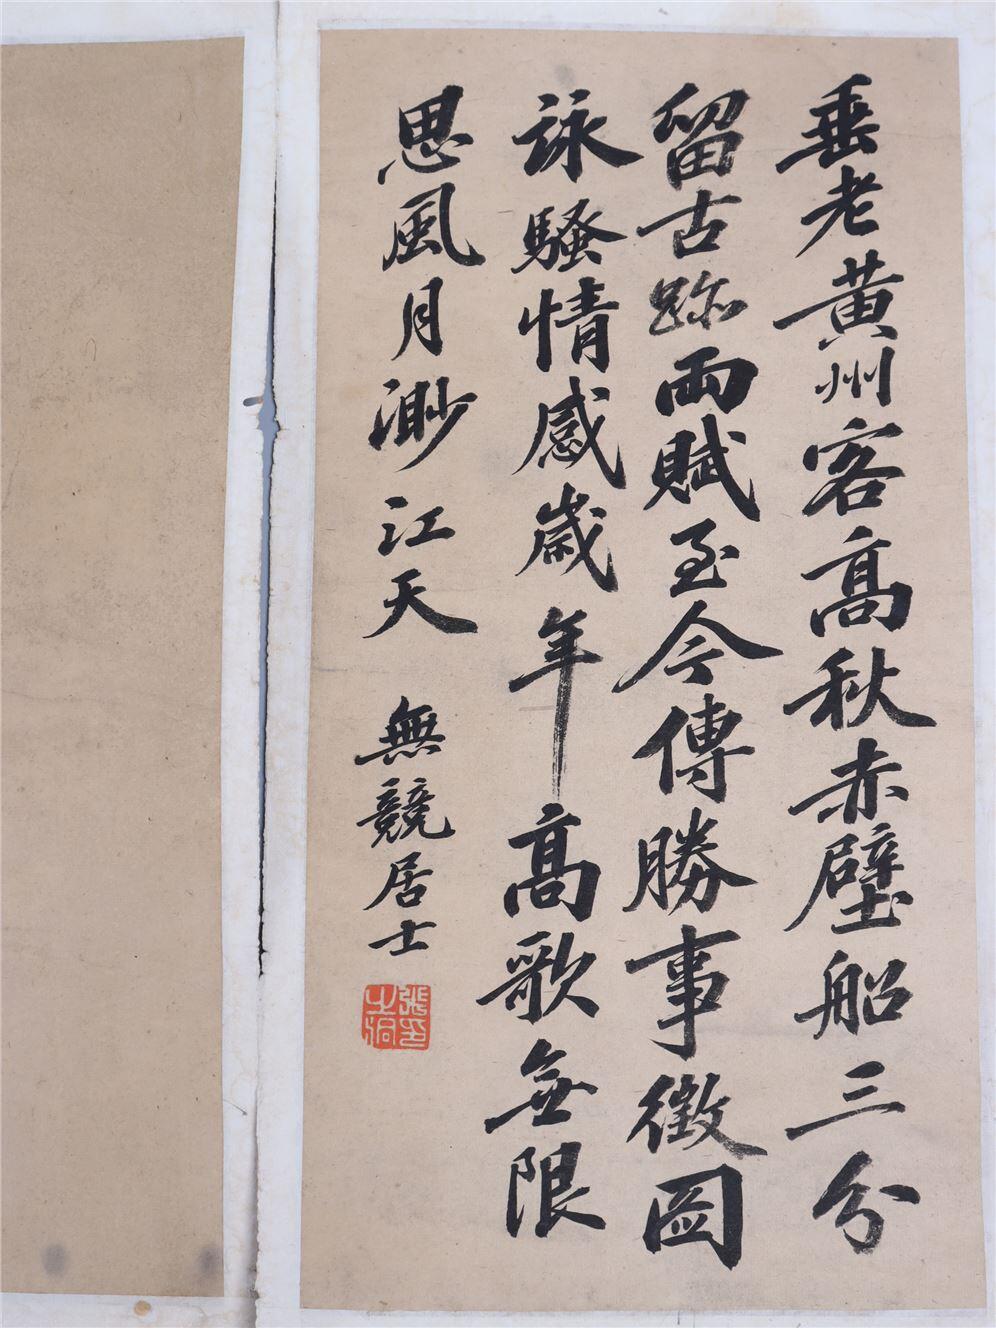 垂老黃州客高秋赤壁船三分
留古跡兩賦至今傳勝事徵圖
詠騷情感歲年高歌無限
思風月渺江天
無競居士
張之洞印